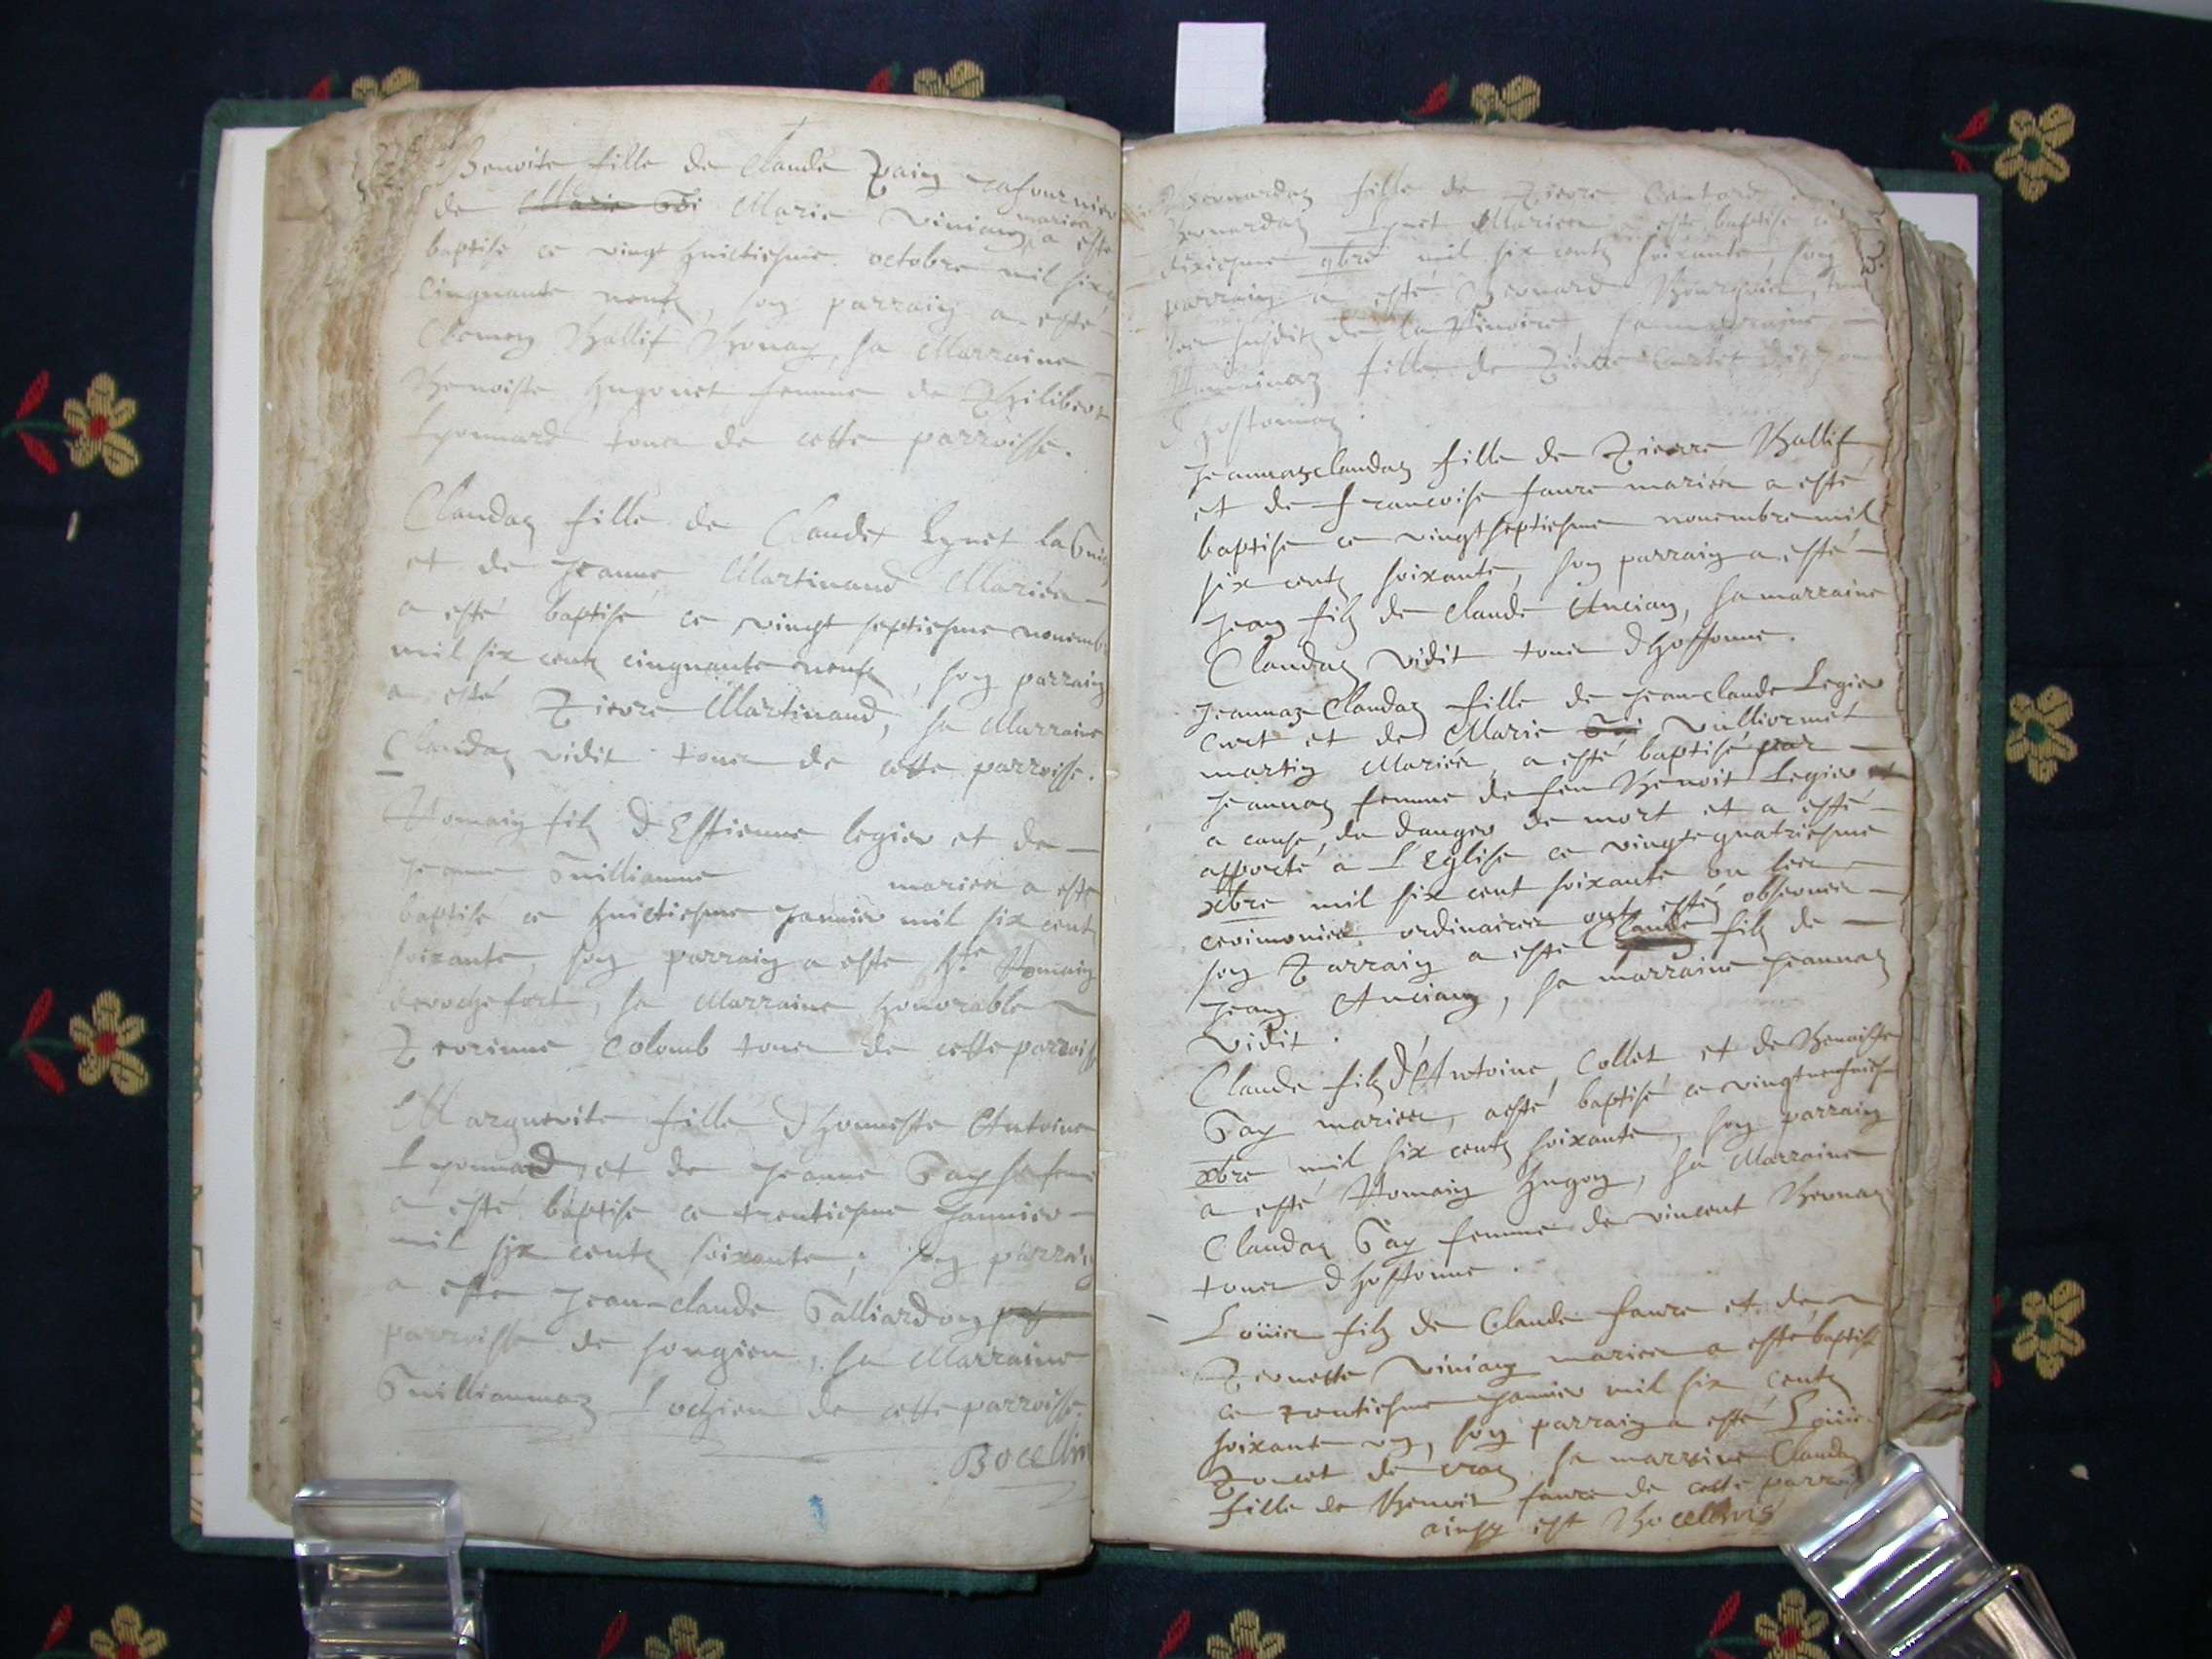 Benoite fille de Claude
de Marie Marie Vinian a esté
mariés
baptisé ce vingt huictiesme octobre mil six
cinquante neufz, son parrain a esté
Clement Ballif sa Marraine
Benoiste Hugonet femme de Philibert
Lyonnard tous de cette parroisse.
Claudaz fille de Claude Lynet
et de Jeanne Martinand Mariés
a esté baptisé ce vingt septiesme novemb
mil six centz cinquante neufz, son parrain
a esté Pierre Martinand, sa Marraine
Claudaz vidit tous de cette parroisse.
Romain filz d'Estienne legier et de
Jeanne Guillianme mariés a esté
baptisé ce huictiesme Janvier mil six centz
soixante, son parrain a esté Romain
derochefort, sa Marraine honorable
Perrinne Colomb tous de cette parroiss
Marguerite fille d'honneste Antoine
Lyonnard, et de Jeanne Gay sa feme
a esté baptisé ce trentiesme Janvier
mil six centz soixante, son parrain
a esté Jean-claude Galliardon
parroisse de songieu, sa Marraine
Guilliaumaz Lochieu de cette parroisse.
Bocellin
Bernardaz fille de Pierre
Bernardaz Lynet Mariés a esté baptisé ce
dixiesme 9bre mil six centz soixante, son
parrain a esté Bernard
les susditz de sa marraine
Romainaz fille de Pierre
d'hostonnaz.
Jeannazclaudaz fille de Pierre Ballif
et de francoise faure mariés a esté
baptisé ce vingtseptiesme novembre mil
six centz soixante, son parrain a esté
Jean filz de Claude Ancian, sa marraine
Claudaz vidit tous d'hostonne.
Jeannaz-Claudaz fille de Jean-claude Legier
et de Marie Vulliermet
martin Mariés, a esté baptisé par
Jeannaz femme de feu Benoit Legier
a cause du danger de mort et a esté
apporté a l'Eglise ce vingtequatriesme
xbre mil six cent soixante ou les
ceremonies ordinaires ont estéz observées
son Parrain a esté Claude filz de
Jean Ancian, sa marraine Jeannaz
vidit.
Claude filz d'Antoine Collet et de Benoiste
Gay mariés, a esté baptisé ce
xbre mil six centz soixante, son parrain
a esté Romain Hugon, sa Marraine
Claudaz Gay femme de vincent Bernaz
tous d'hostonne.
Loüis filz de Claude faure et de
Pernette Vinian mariés a esté baptisé
ce trentiesme Janvier mil six centz
soixante un, son parrain a esté Loüis
Poncet de sa marraine Claudaz
fille de Benoit faure de cette parroi
ainsy est Bocellinis